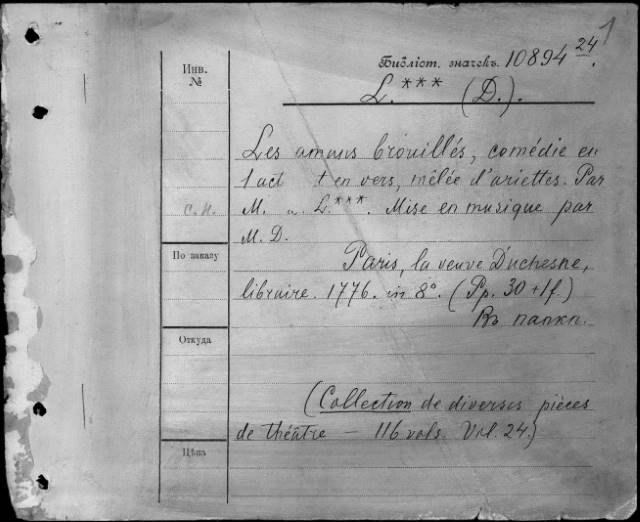 1
Библіот. значекъ. 10894 24.
Инв.
№
L. *** (D.).
Les amours brouillés, comédie en
1 act et en vers, mêlée d'ariettes. Par
С. Н.
M. L.***. Mise en musique par
M. D.
По заказу
Paris, la veuve Duchesne,
libraire. 1776. in 8º. (Pp. 30 + 1f.)
Въ папкп.
Откуда
(Collection de diverses pièces
de théâtre — 116 vols. Vol. 24.)
Цѣна